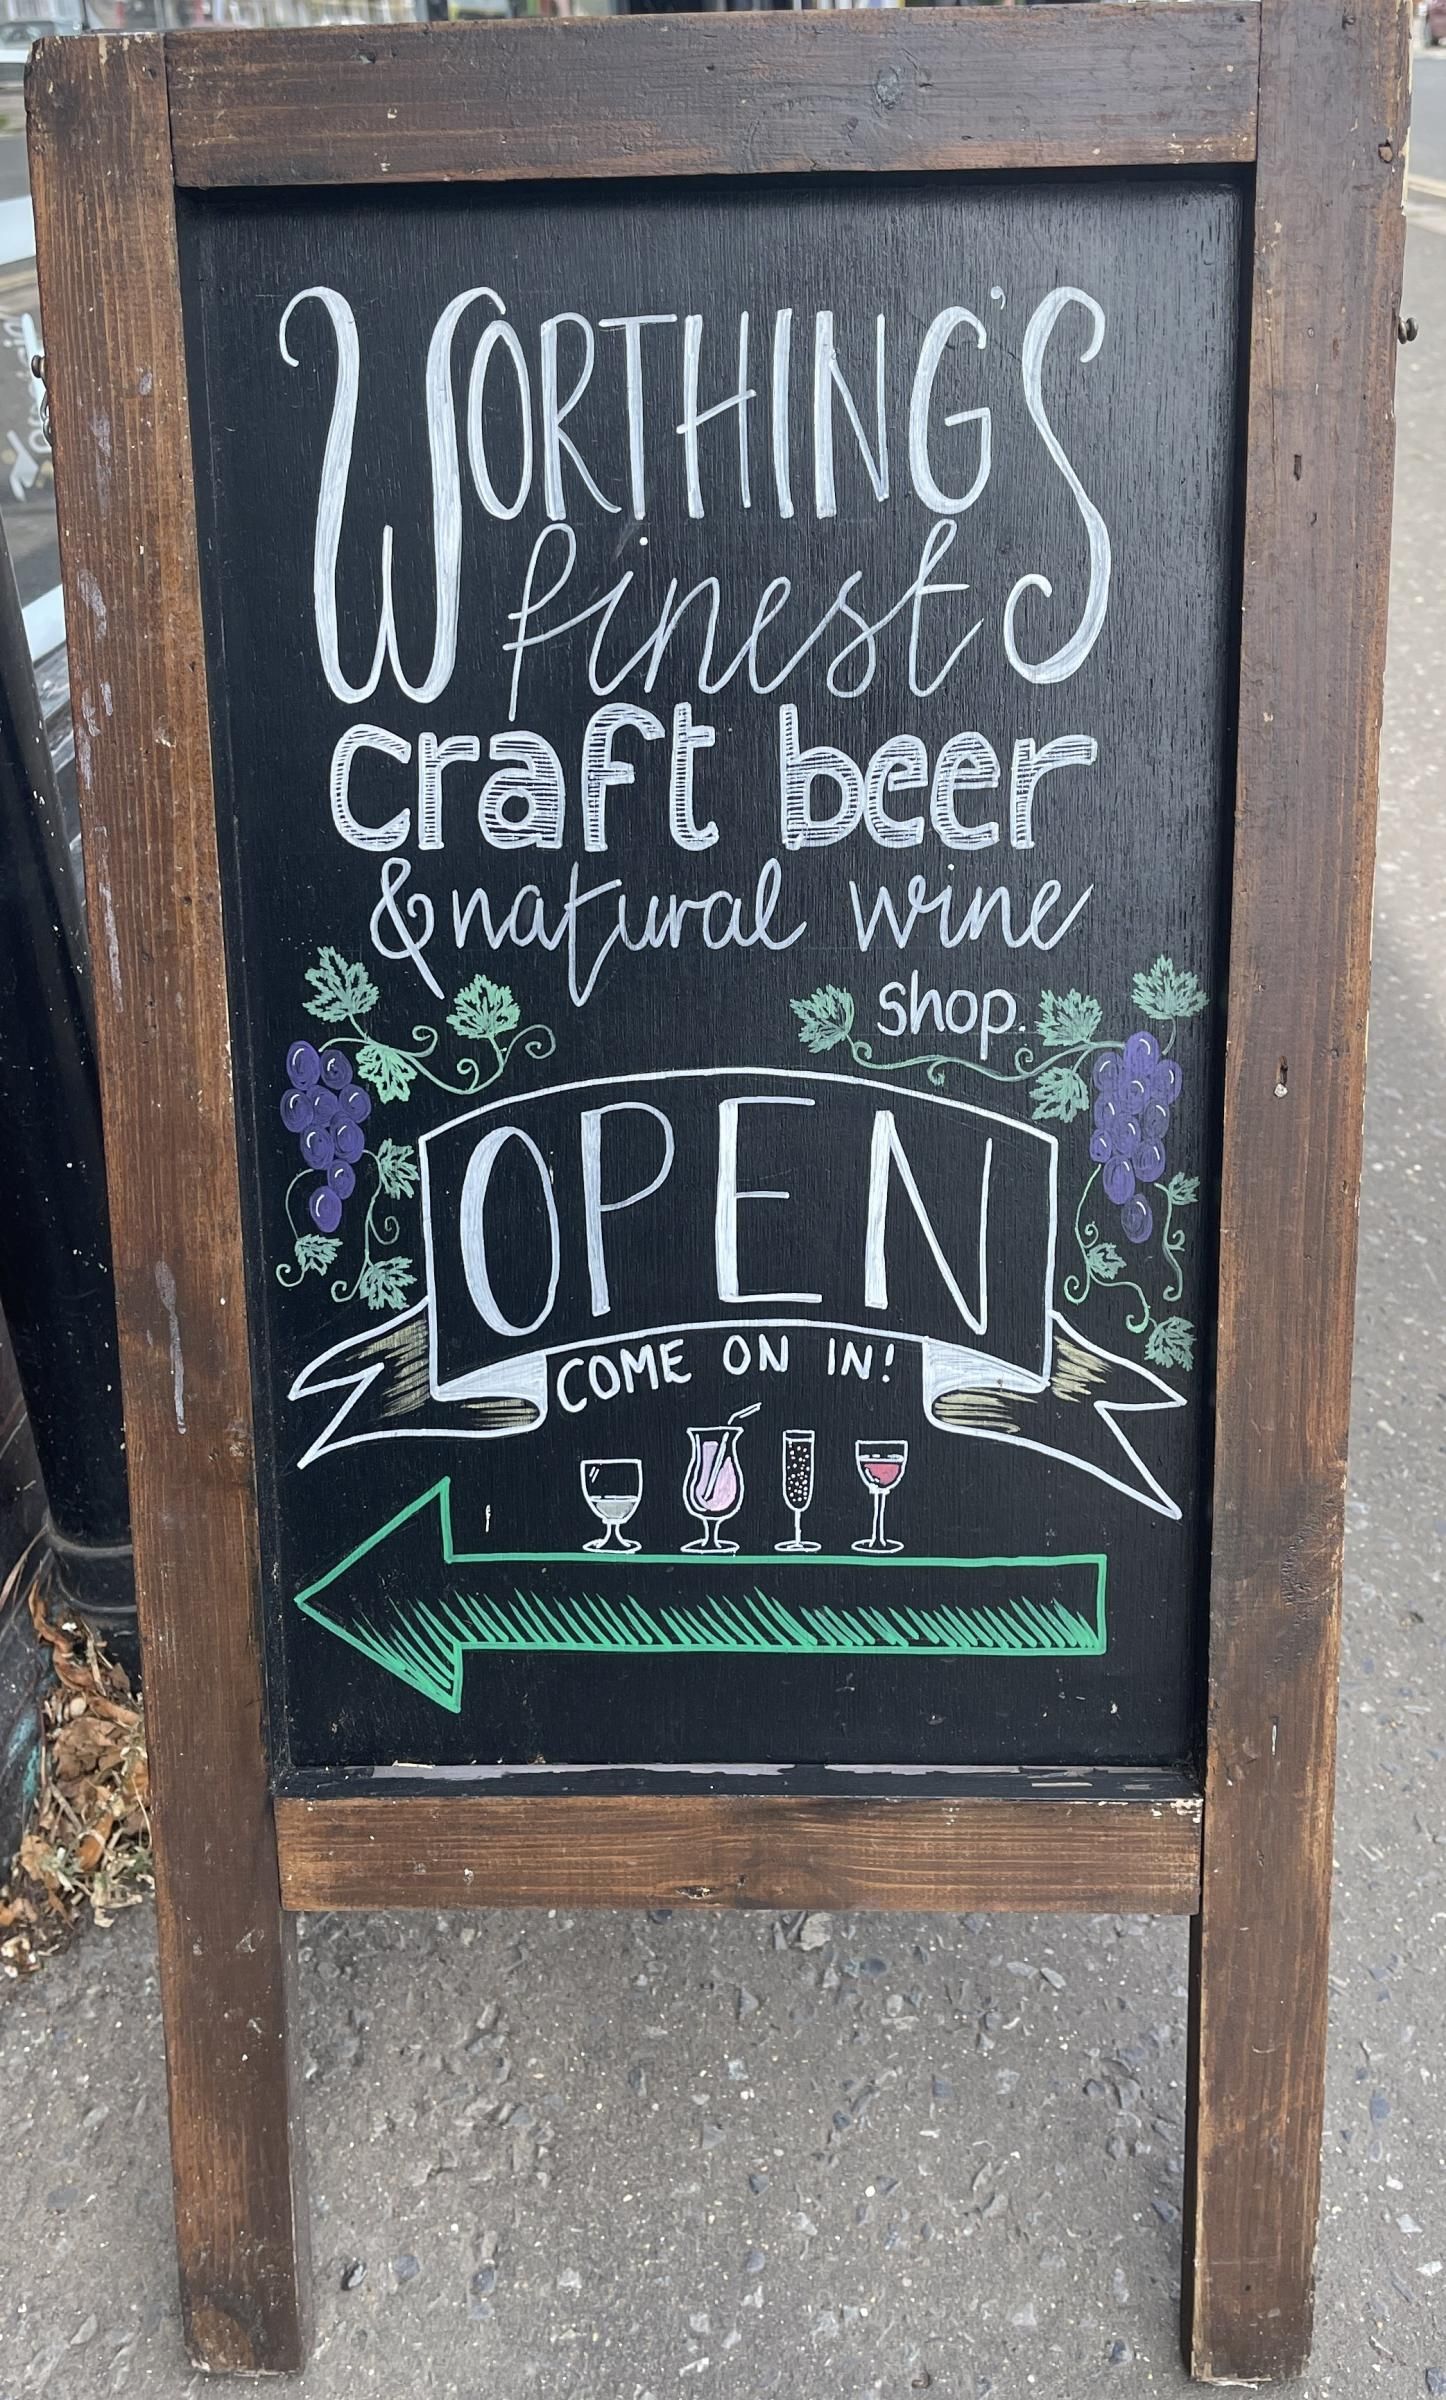 WORTHING'S
finest
craft beer
& natural wine
shop.
OPEN
COME ON IN!